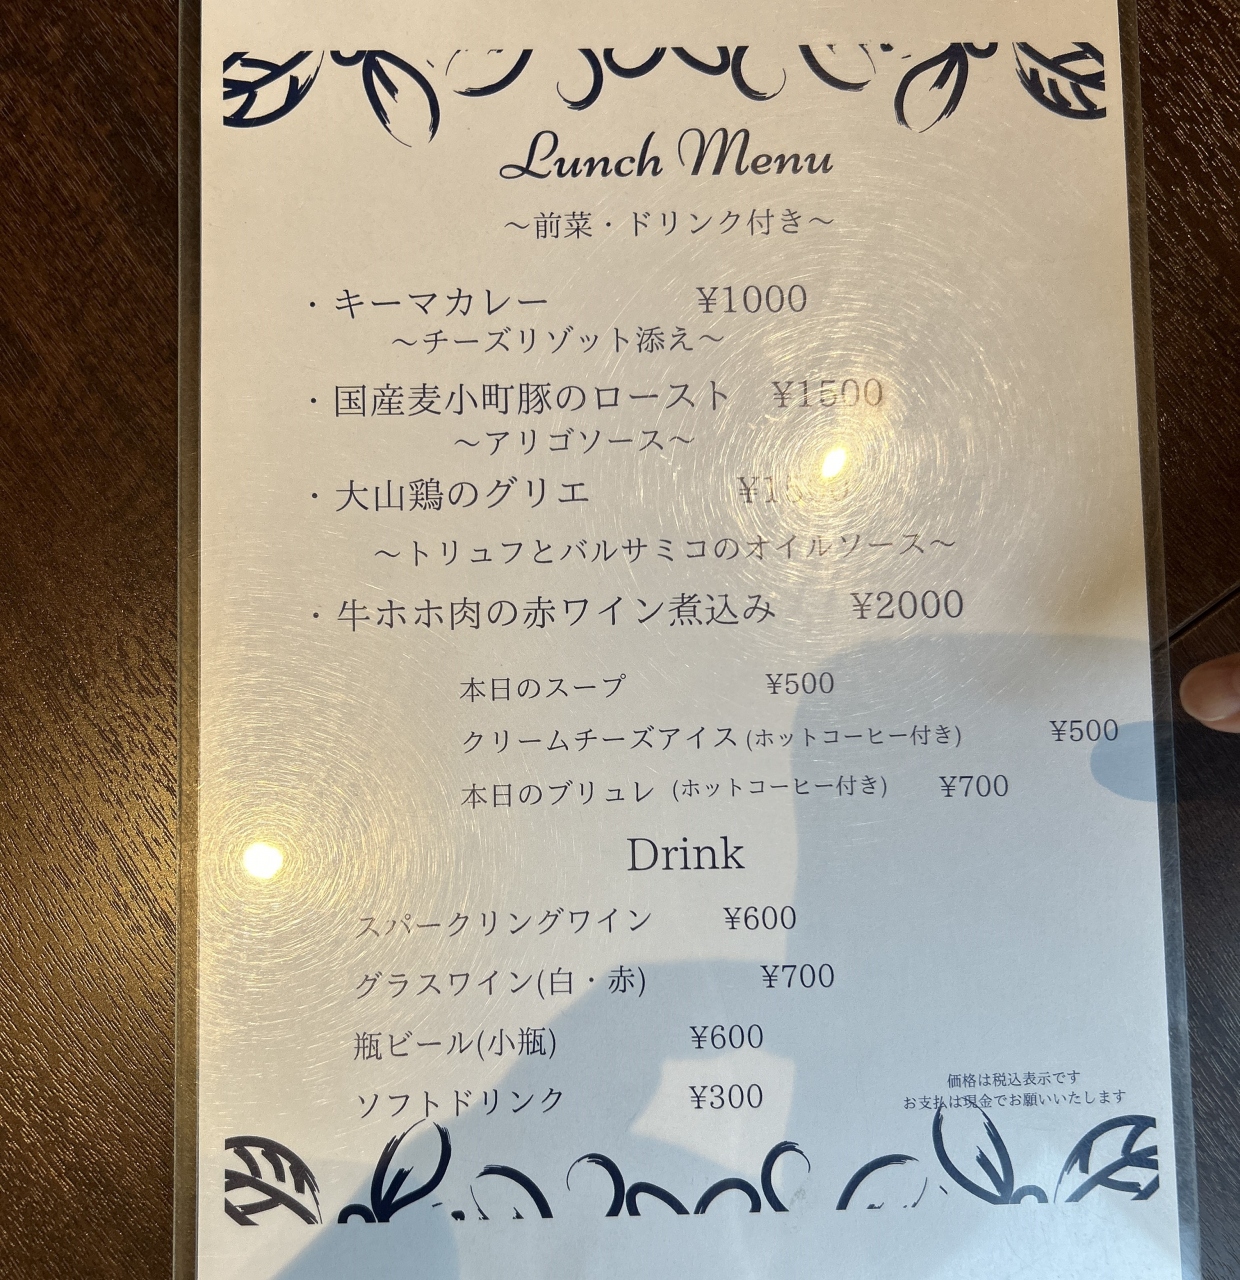 Lunch Menu
～前菜・ドリンク付き～
・キーマカレー ¥1000
～チーズリゾット添え～
・国産麦小町豚のロースト ¥1500
～アリゴソース～
・大山鶏のグリエ
～トリュフとバルサミコのオイルソース～
・牛ホホ肉の赤ワイン煮込み ¥2000
本日のスープ ¥500
クリームチーズアイス(ホットコーヒー付き) ¥500
本日のブリュレ (ホットコーヒー付き) ¥700
Drink
スパークリングワイン ¥600
グラスワイン(白・赤) ¥700
瓶ビール(小瓶) ¥600
ソフトドリンク ¥300
価格は税込表示です
お支払は現金でお願いいたします